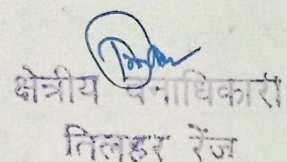 क्षेत्रीय वनाधिकारी
तिलहर रेंज